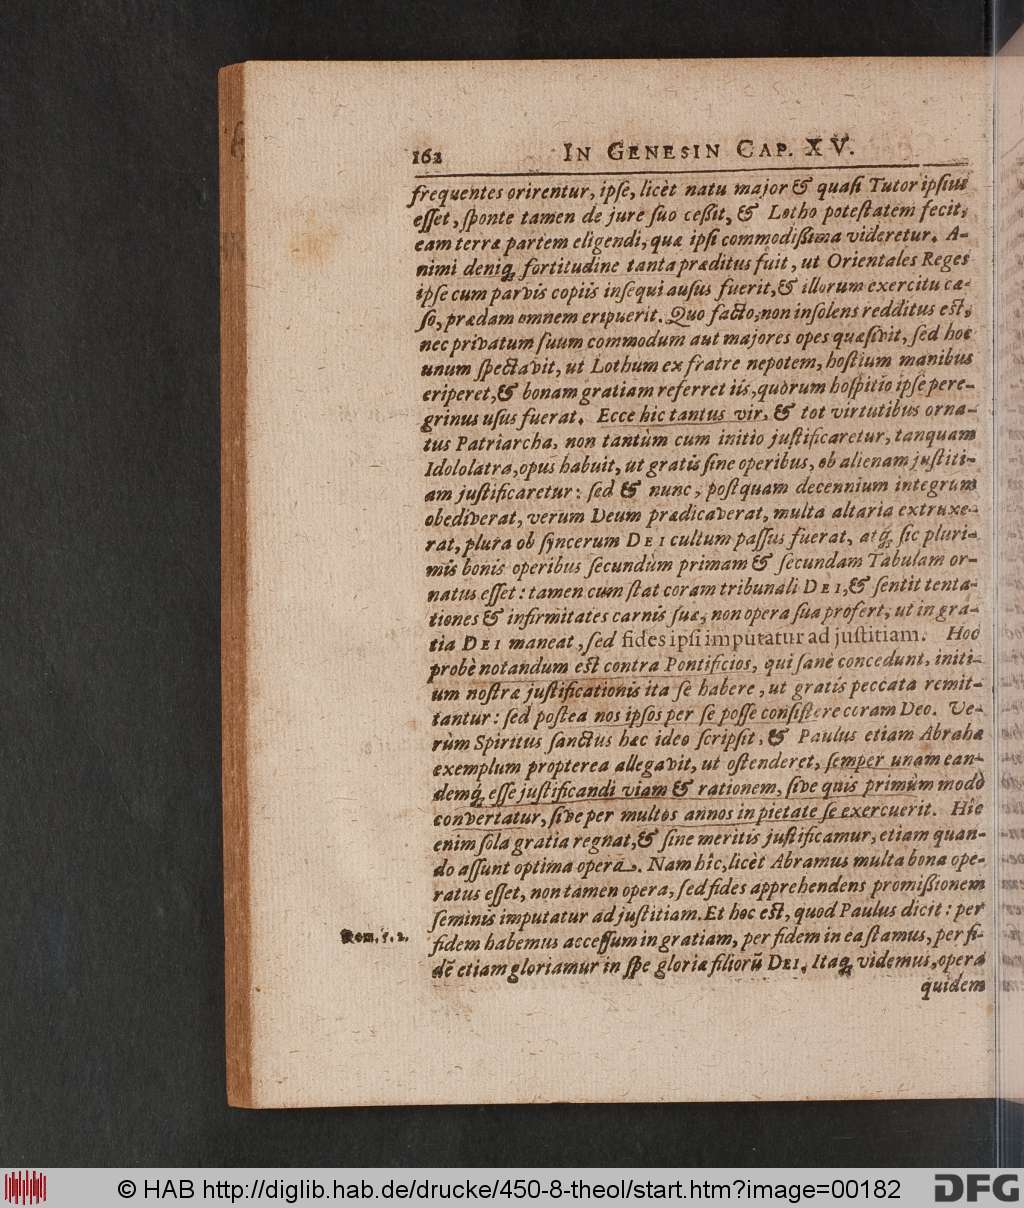 162 IN GENESIN CAP. XV.
frequentes orirentur, ipſe, licèt natu major & quaſi Tutor ipſius
eſſet, ſponte tamen de jure ſuo ceßit, & Lotho poteſtatem fecit,
eam terræ partem eligendi, quæ ipſi commodißima videretur. A-
nimi deniq; fortitudine tanta præditus fuit, ut Orientales Reges
ipſe cum parvis copiis inſequi auſus fuerit, & illorum exercitu cæ-
ſo, prædam omnem eripuerit. Quo facto, non inſolens redditus eſt,
nec privatum ſuum commodum aut majores opes quæſivit, ſed hoc
unum ſpectavit, ut Lothum ex fratre nepotem, hoſtium manibus
eriperet, & bonam gratiam referret iis, quorum hoſpitio ipſe pere-
grinus uſus fuerat. Ecce hic tantus vir, & tot virtutibus orna-
tus Patriarcha, non tantùm cum initio juſtificaretur, tanquam
Idololatra, opus habuit, ut gratis ſine operibus, ob alienam juſtiti-
am juſtificaretur: ſed & nunc, poſtquam decennium integrum
obediverat, verum Deum prædicaverat, multa altaria extruxe-
rat, plura ob ſyncerum DEI cultum paſſus fuerat, atq; ſic pluri-
mis bonis operibus ſecundùm primam & ſecundam Tabulam or-
natus eſſet: tamen cum ſtat coram tribunali DEI, & ſentit tenta-
tiones & infirmitates carnis ſuæ, non opera ſua profert, ut in gra-
tia DEI maneat, ſed fides ipſi imputatur ad juſtitiam. Hoc
probè notandum eſt contra Pontificios, qui ſanè concedunt, initi-
um noſtræ juſtificationis ita ſe habere, ut gratis peccata remit-
tantur: ſed poſtea nos ipſos per ſe poſſe conſiſtere coram Deo. Ve-
rùm Spiritus ſanctus hæc ideo ſcripſit, & Paulus etiam Abrahæ
exemplum propterea allegavit, ut oſtenderet, ſemper unam ean-
demq́; eſſe juſtificandi viam & rationem, ſive quis primùm modò
convertatur, ſive per multos annos in pietate ſe exercuerit. Hîc
enim ſola gratia regnat, & ſine meritis juſtificamur, etiam quan-
do aſſunt optima opera. Nam hîc, licèt Abramus multa bona ope-
ratus eſſet, non tamen opera, ſed fides apprehendens promißionem
ſeminis imputatur ad juſtitiam. Et hoc eſt, quod Paulus dicit: per
Rom. 5. 2. fidem habemus acceſſum in gratiam, per fidem in ea ſtamus, per fi-
dē etiam gloriamur in ſpe gloriæ filiorū DEI. Itaq; videmus, opera
quidem
© HAB http://diglib.hab.de/drucke/450-8-theol/start.htm?image=00182
DFG